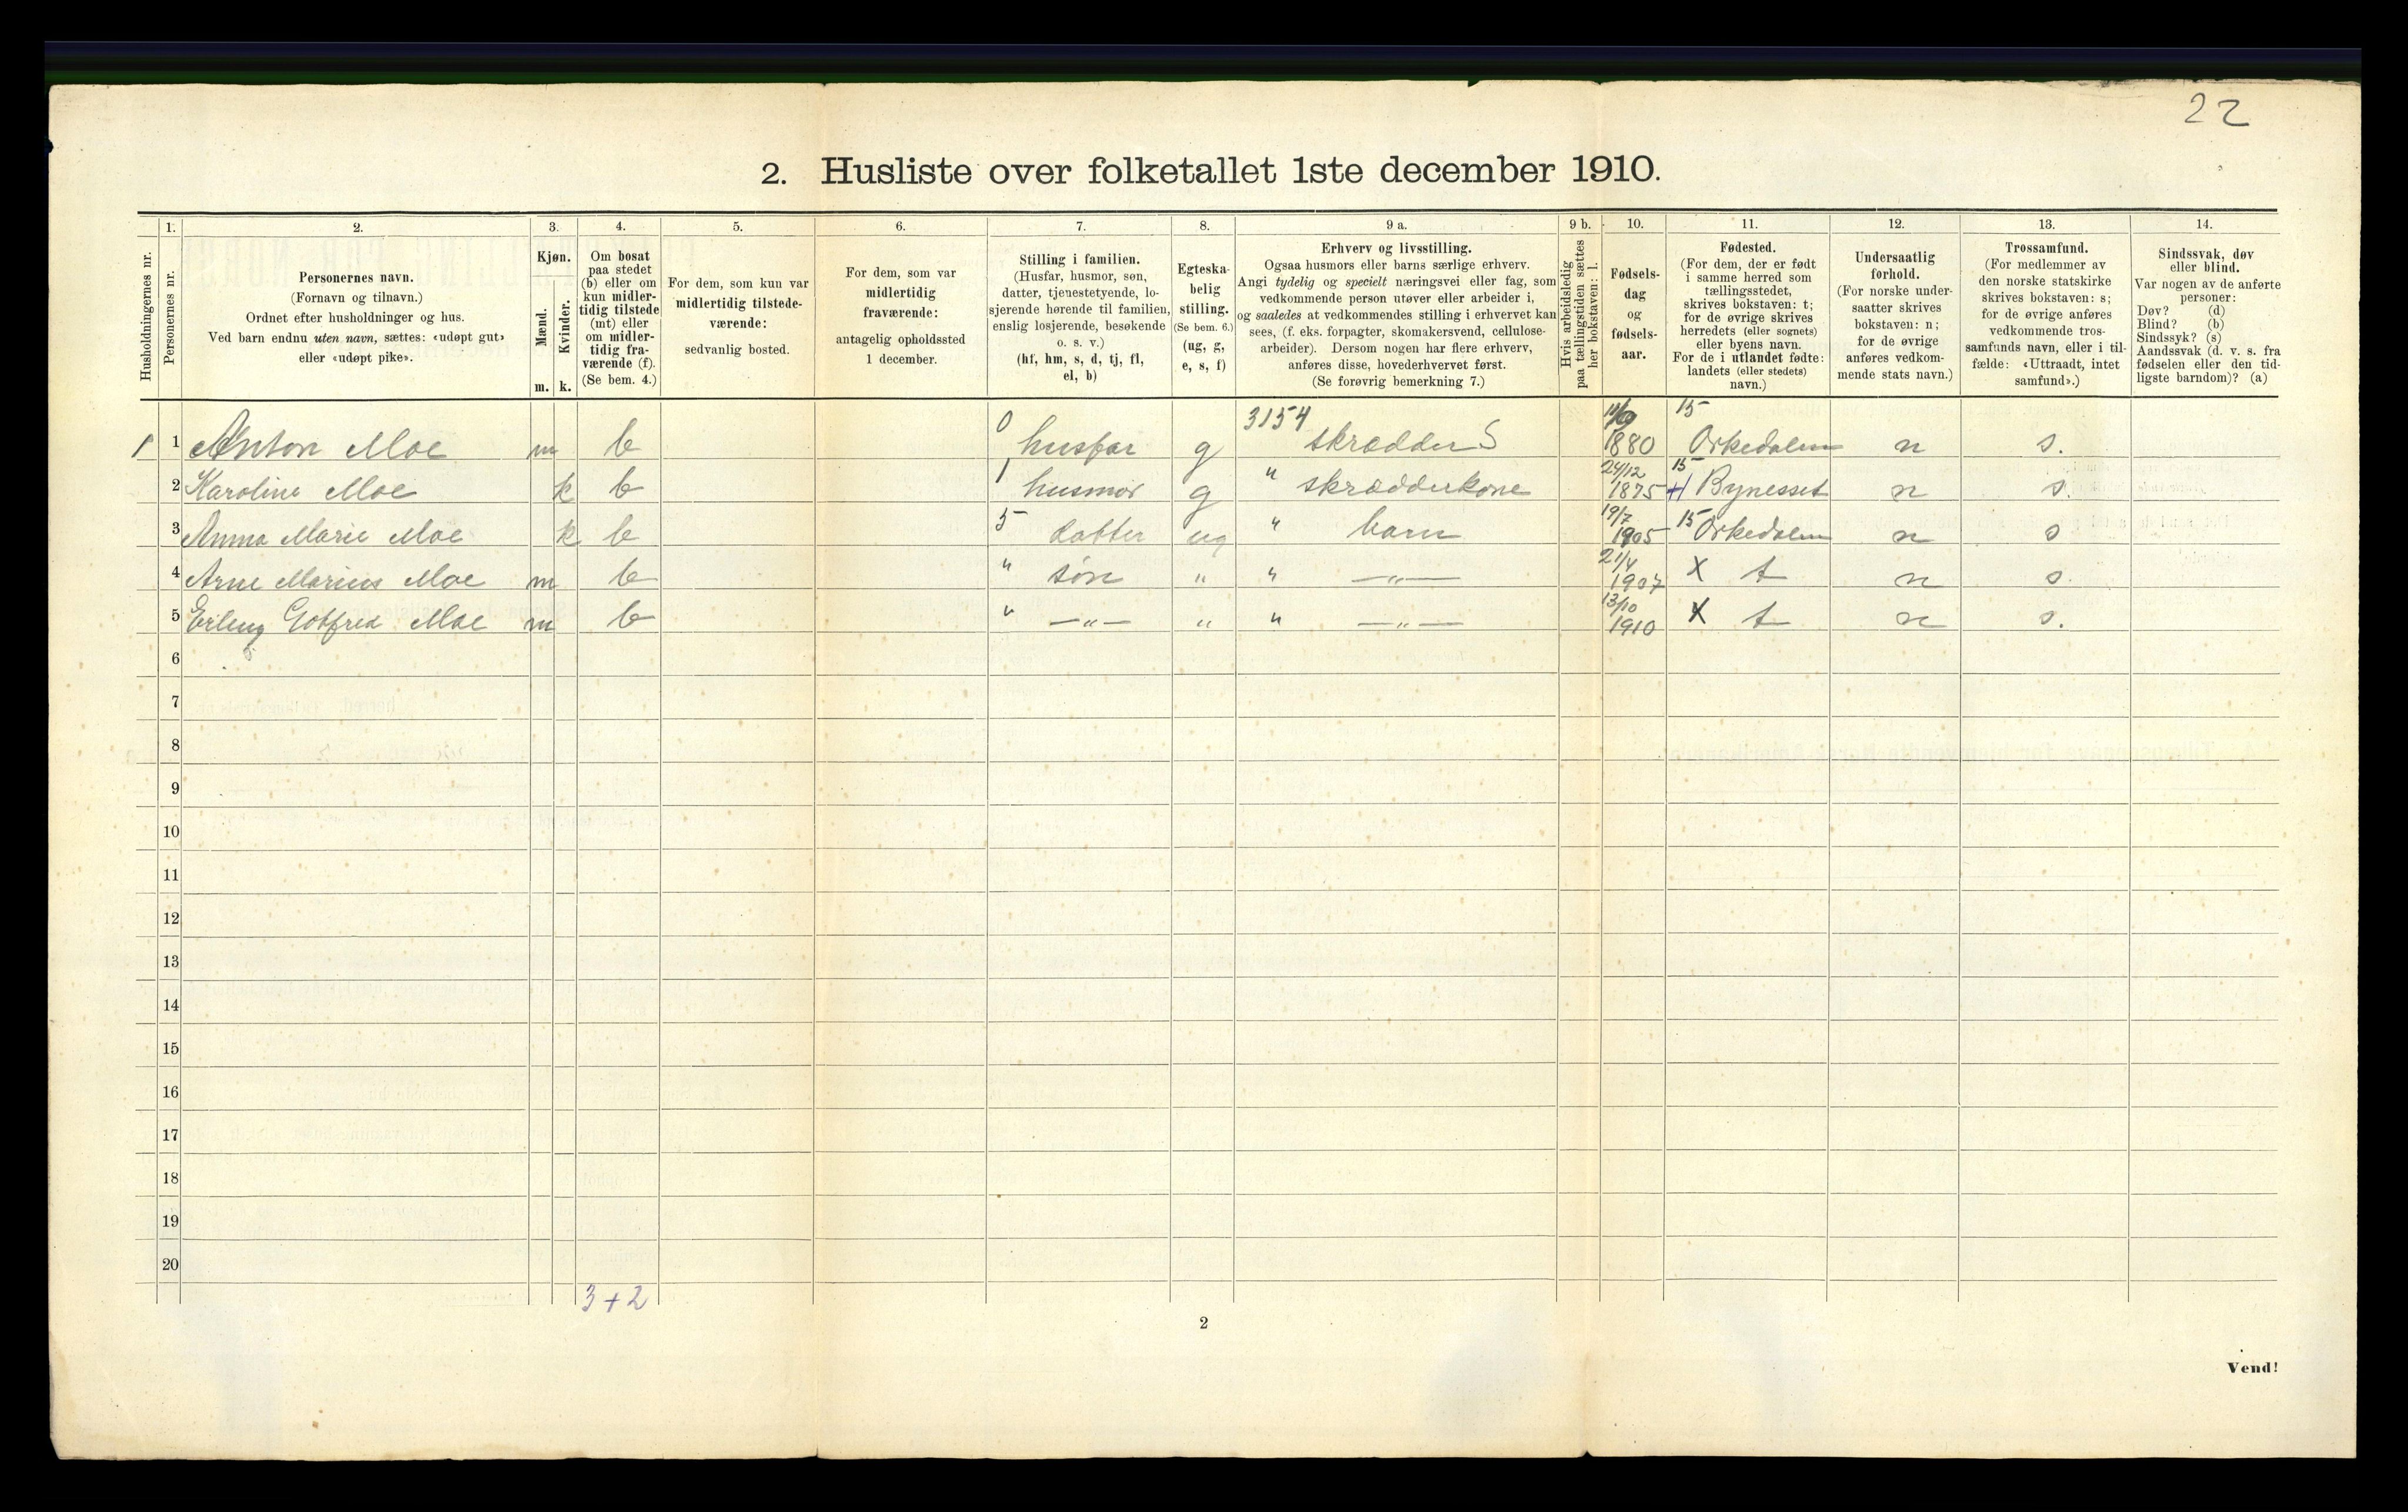 22
2. Husliste over folketallet 1ste december 1910.
Husholdningernes nr.
1. Personernes nr.
2. Personernes navn.
(Fornavn og tilnavn.)
Ordnet efter husholdninger og hus.
Ved barn endnu uten navn, sættes: «udøpt gut»
eller «udøpt pike».
3. Kjøn.
Mænd. m.
Kvinder. k.
4. Om bosat
paa stedet
(b) eller om
kun midler-
tidig tilstede
(mt) eller
om midler-
tidig fra-
værende (f).
(Se bem. 4.)
5. For dem, som kun var
midlertidig tilstede-
værende:
sedvanlig bosted.
6. For dem, som var
midlertidig
fraværende:
antagelig opholdssted
1 december.
7. Stilling i familien.
(Husfar, husmor, søn,
datter, tjenestetyende, lo-
sjerende hørende til familien,
enslig losjerende, besøkende
o. s. v.)
(hf, hm, s, d, tj, fl,
el, b)
8. Egteska-
belig
stilling.
(Se bem. 6.)
(ug, g,
e, s, f)
9 a. Erhverv og livsstilling.
Ogsaa husmors eller barns særlige erhverv.
Angi tydelig og specielt næringsvei eller fag, som
vedkommende person utøver eller arbeider i,
og saaledes at vedkommendes stilling i erhvervet kan
sees, (f. eks. forpagter, skomakersvend, cellulose-
arbeider). Dersom nogen har flere erhverv,
anføres disse, hovederhvervet først.
(Se forøvrig bemerkning 7.)
9 b. Hvis arbeidsledig
paa tællingstiden sættes
her bokstaven: l.
10. Fødsels-
dag
og
fødsels-
aar.
11. Fødested.
(For dem, der er født
i samme herred som
tællingsstedet,
skrives bokstaven: t;
for de øvrige skrives
herredets (eller sognets)
eller byens navn.
For de i utlandet fødte:
landets (eller stedets)
navn.)
12. Undersaatlig
forhold.
(For norske under-
saatter skrives
bokstaven: n;
for de øvrige
anføres vedkom-
mende stats navn.)
13. Trossamfund.
(For medlemmer av
den norske statskirke
skrives bokstaven: s;
for de øvrige anføres
vedkommende tros-
samfunds navn, eller i til-
fælde: «Uttraadt, intet
samfund».)
14. Sindssvak, døv
eller blind.
Var nogen av de anførte
personer:
Døv? (d)
Blind? (b)
Sindssyk? (s)
Aandssvak (d. v. s. fra
fødselen eller den tid-
ligste barndom)? (a)
1 1 Anton Moe m b 0 husfar g 3154 skrædder S 1880 15 Orkedalen n s.
2 Karoline Moe k b 1 husmor g " skrædderkone 24/12 1875 15 Bynesset n s.
3 Anna Marie Moe k b 5 datter ug " barn 19/7 1905 15 Orkedalen n s
4 Arne Marius Moe m b " søn " " —"— 21/4 1907 X t n s
5 Erling Gotfred Moe m b " —"— " " —"— 13/10 1910 X t n s.
6
7
8
9
10
11
12
13
14
15
16
17
18
19
20
3+2
2
Vend!